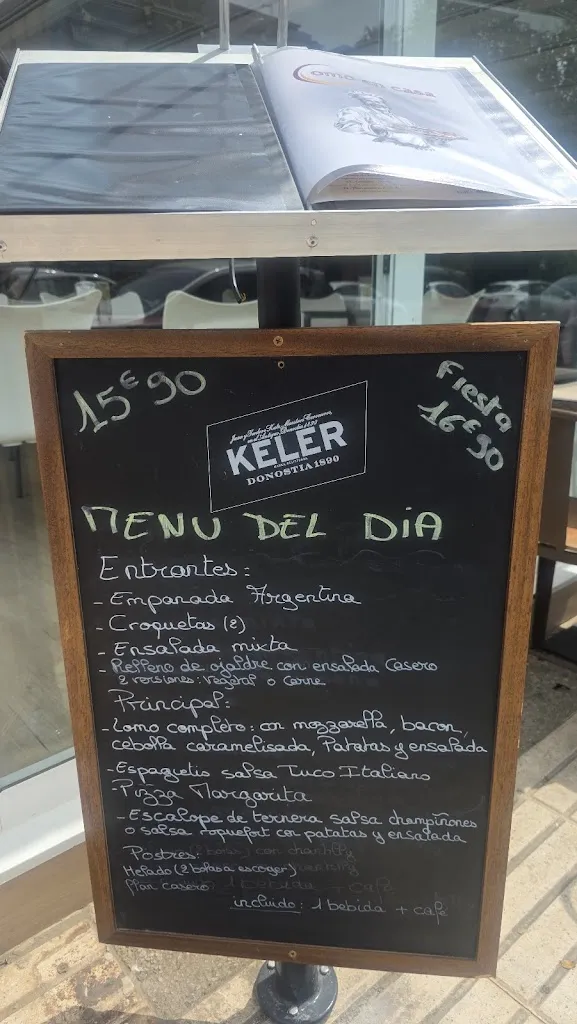 Como en casa
15€90
Fiesta
16€90
KELER
DONOSTIA 1890
MENU DEL DIA
Entrantes:
- Empanada Argentina
- Croquetas (8)
- Ensalada mixta
- Relleno de ojaldre con ensalada casero
2 versiones: vegetal o carne
Principal:
- Lomo completo: con mozzarella, bacon,
cebolla caramelisada, Patatas y ensalada
- Espaguetis salsa Tuco Italiano
- Pizza Margarita
- Escalope de ternera salsa champiñones
o salsa roquefort con patatas y ensalada
Postres:
Helado (2 bolas a escoger)
Flan casero
incluido: 1 bebida + café